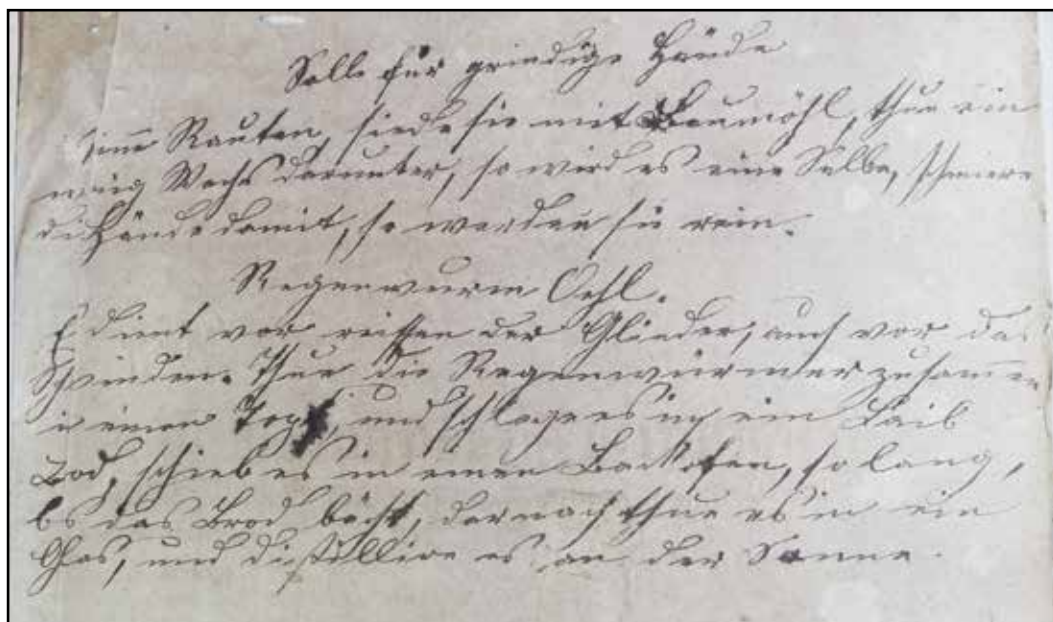 Salbe für grindige Hände
Nimm Rauten, siede sie mit Baumöhl, thue ein
wenig Wachs darunter, so wird es eine Salbe, schmiere
die Hände damit, so werden sie rein.
Regenwurm Oehl.
Es dient vor reissen der Glieder, auch vor das
Schwinden. Thue die Regenwürmer zusammen
in einen Topf, und schlage es in ein Laib
Brod, schieb es in einen Backofen, so lang,
bis das Brod bäckt, darnach thue es in ein
Glas, und distillire es an der Sonne.